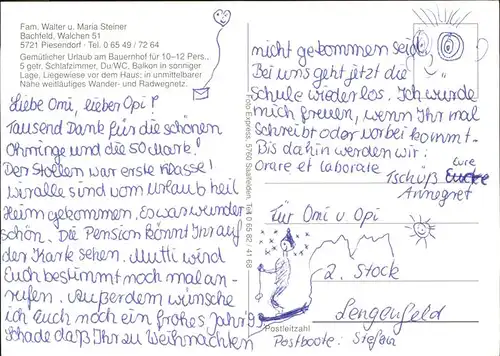 Fam. Walter u. Maria Steiner
Bachfeld, Walchen 51
5721 Piesendorf · Tel. 0 65 49 / 72 64
Gemütlicher Urlaub am Bauernhof für 10–12 Pers.,
5 getr. Schlafzimmer, Du/WC, Balkon in sonniger
Lage, Liegewiese vor dem Haus; in unmittelbarer
Nähe weitläufiges Wander- und Radwegnetz.
Liebe Omi, lieber Opi!
Tausend Dank für die schönen
Ohrringe und die 50 Mark!
Der Stollen war erste Klasse!
Wir alle sind vom Urlaub heil
Heim gekommen. Es war wunder
schön. Die Pension könnt Ihr auf
der Karte sehen. Mutti wird
Euch bestimmt noch mal an-
rufen. Außerdem wünsche
ich Euch noch ein frohes Jahr
Schade daß Ihr zu Weihnachten
nicht gekommen seid.
Bei uns geht jetzt die
Schule wieder los. Ich würde
mich freuen, wenn Ihr mal
Schreibt oder vorbei kommt.
Bis dahin werden wir:
Orare et laborate
Tschüß Eure
Annegret
Foto Express, 5760 Saalfelden, Tel. 0 65 82 / 41 68
Für Omi u Opi
2. Stock
Lengenfeld
Postleitzahl
Postbote: Stefan